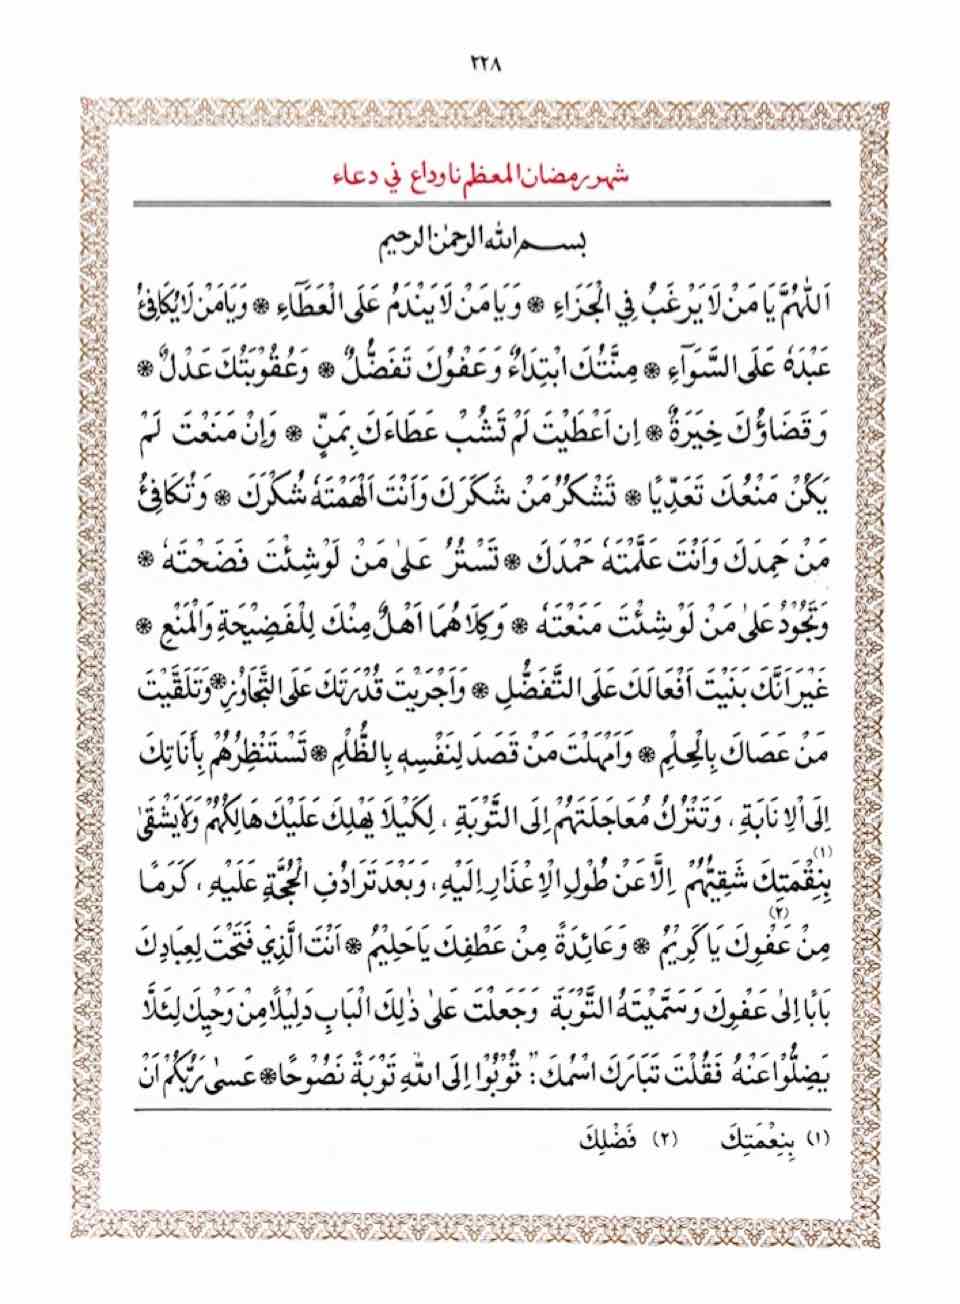 ٢٢٨
شهر رمضان المعظم نا وداع ني دعاء
بسم الله الرحمٰن الرحيم
اَللّٰهُمَّ يَا مَنْ لَا يَرْغَبُ فِي الْجَزَاءِ ❋ وَيَا مَنْ لَا يَنْدَمُ عَلَى الْعَطَاءِ ❋ وَيَا مَنْ لَا يُكَافِئُ
عَبْدَهٗ عَلَى السَّوَآءِ ❋ مِنَّتُكَ ابْتِدَاءٌ وَعَفْوُكَ تَفَضُّلٌ ❋ وَعُقُوْبَتُكَ عَدْلٌ ❋
وَقَضَاؤُكَ خِيَرَةٌ ❋ اِن اَعْطَيْتَ لَمْ تَشُبْ عَطَاءَكَ بِمَنٍّ ❋ وَاِنْ مَنَعْتَ لَمْ
يَكُنْ مَنْعُكَ تَعَدِّيًا ❋ تَشْكُرُ مَنْ شَكَرَكَ وَاَنْتَ اَلْهَمْتَهٗ شُكْرَكَ ❋ وَتُكَافِئُ
مَنْ حَمِدَكَ وَاَنْتَ عَلَّمْتَهٗ حَمْدَكَ ❋ تَسْتُرُ عَلٰى مَنْ لَوْ شِئْتَ فَضَحْتَهٗ ❋
وَتَجُوْدُ عَلٰى مَنْ لَوْ شِئْتَ مَنَعْتَهٗ ❋ وَكِلَاهُمَا اَهْلٌ مِنْكَ لِلْفَضِيْحَةِ وَالْمَنْعِ ❋
غَيْرَ اَنَّكَ بَنَيْتَ اَفْعَالَكَ عَلَى التَّفَضُّلِ ❋ وَاَجْرَيْتَ قُدْرَتَكَ عَلَى التَّجَاوُزِ ❋ وَتَلَقَّيْتَ
مَنْ عَصَاكَ بِالْحِلْمِ ❋ وَاَمْهَلْتَ مَنْ قَصَدَ لِنَفْسِهٖ بِالظُّلْمِ ❋ تَسْتَنْظِرُهُمْ بِاَنَاتِكَ
اِلَى الْاِنَابَةِ ، وَتَتْرُكُ مُعَاجَلَتَهُمْ اِلَى التَّوْبَةِ ، لِكَيْلَا يَهْلِكَ عَلَيْكَ هَالِكُهُمْ وَلَا يَشْقٰى
بِنِقْمَتِكَ (١) شَقِيُّهُمْ اِلَّا عَنْ طُوْلِ الْاِعْذَارِ اِلَيْهِ ، وَبَعْدَ تَرَادُفِ الْحُجَّةِ عَلَيْهِ ، كَرَمًا
مِنْ عَفْوِكَ (٢) يَا كَرِيْمُ ❋ وَعَائِدَةً مِنْ عَطْفِكَ يَا حَلِيْمُ ❋ اَنْتَ الَّذِيْ فَتَحْتَ لِعِبَادِكَ
بَابًا اِلٰى عَفْوِكَ وَسَمَّيْتَهُ التَّوْبَةَ وَجَعَلْتَ عَلٰى ذٰلِكَ الْبَابِ دَلِيْلًا مِنْ وَحْيِكَ لِئَلَّا
يَضِلُّوْا عَنْهُ فَقُلْتَ تَبَارَكَ اسْمُكَ : "تُوْبُوْا اِلَى اللهِ تَوْبَةً نَصُوْحًا ❋ عَسٰى رَبُّكُمْ اَنْ
(١) بِنِعْمَتِكَ (٢) فَضْلِكَ